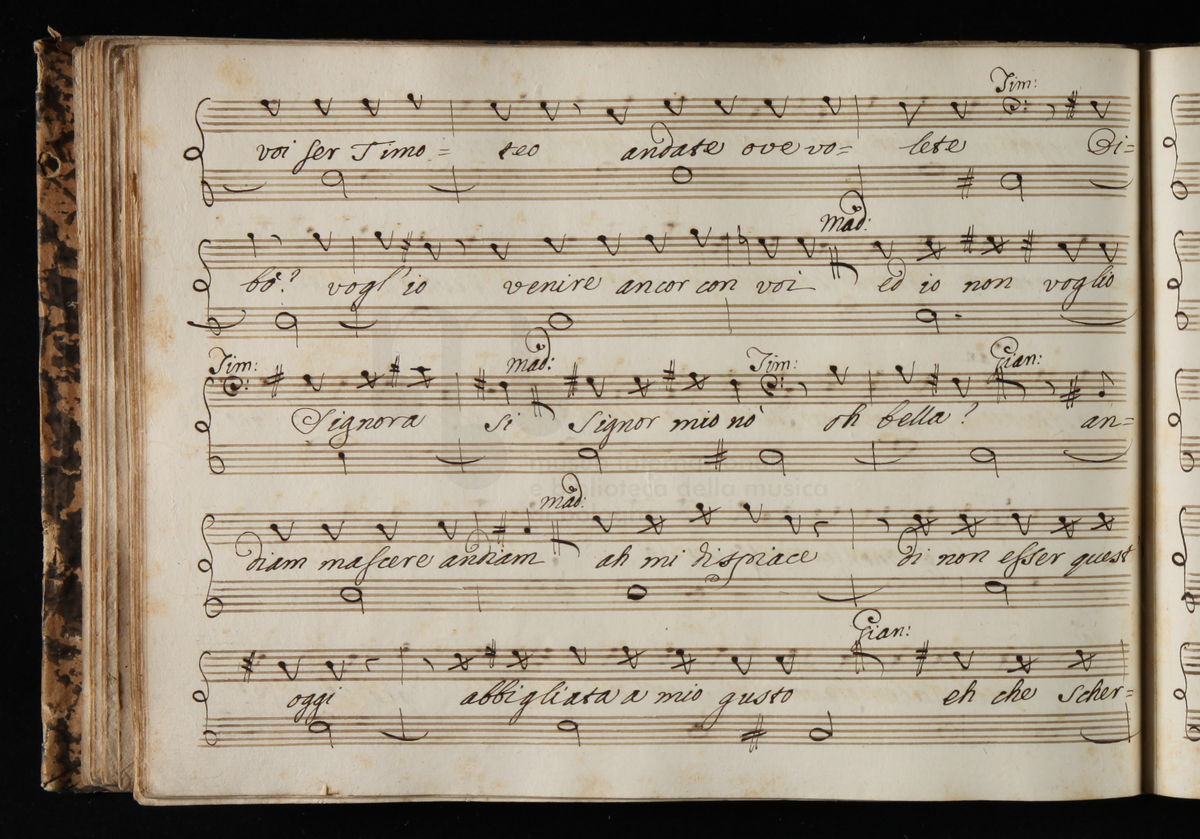 Tim:
voi ser Timo= teo andate ove vo= lete Di=
Mad:
bò? vogl' io venire ancor con voi ed io non voglio
Tim: Mad: Tim: Gian:
Signora si Signor mio nò oh bella? an=
e biblioteca della musica
Mad:
diam mascere andiam ah mi dispiace di non esser quest'
Gian:
oggi abbigliata a mio gusto eh che scher=